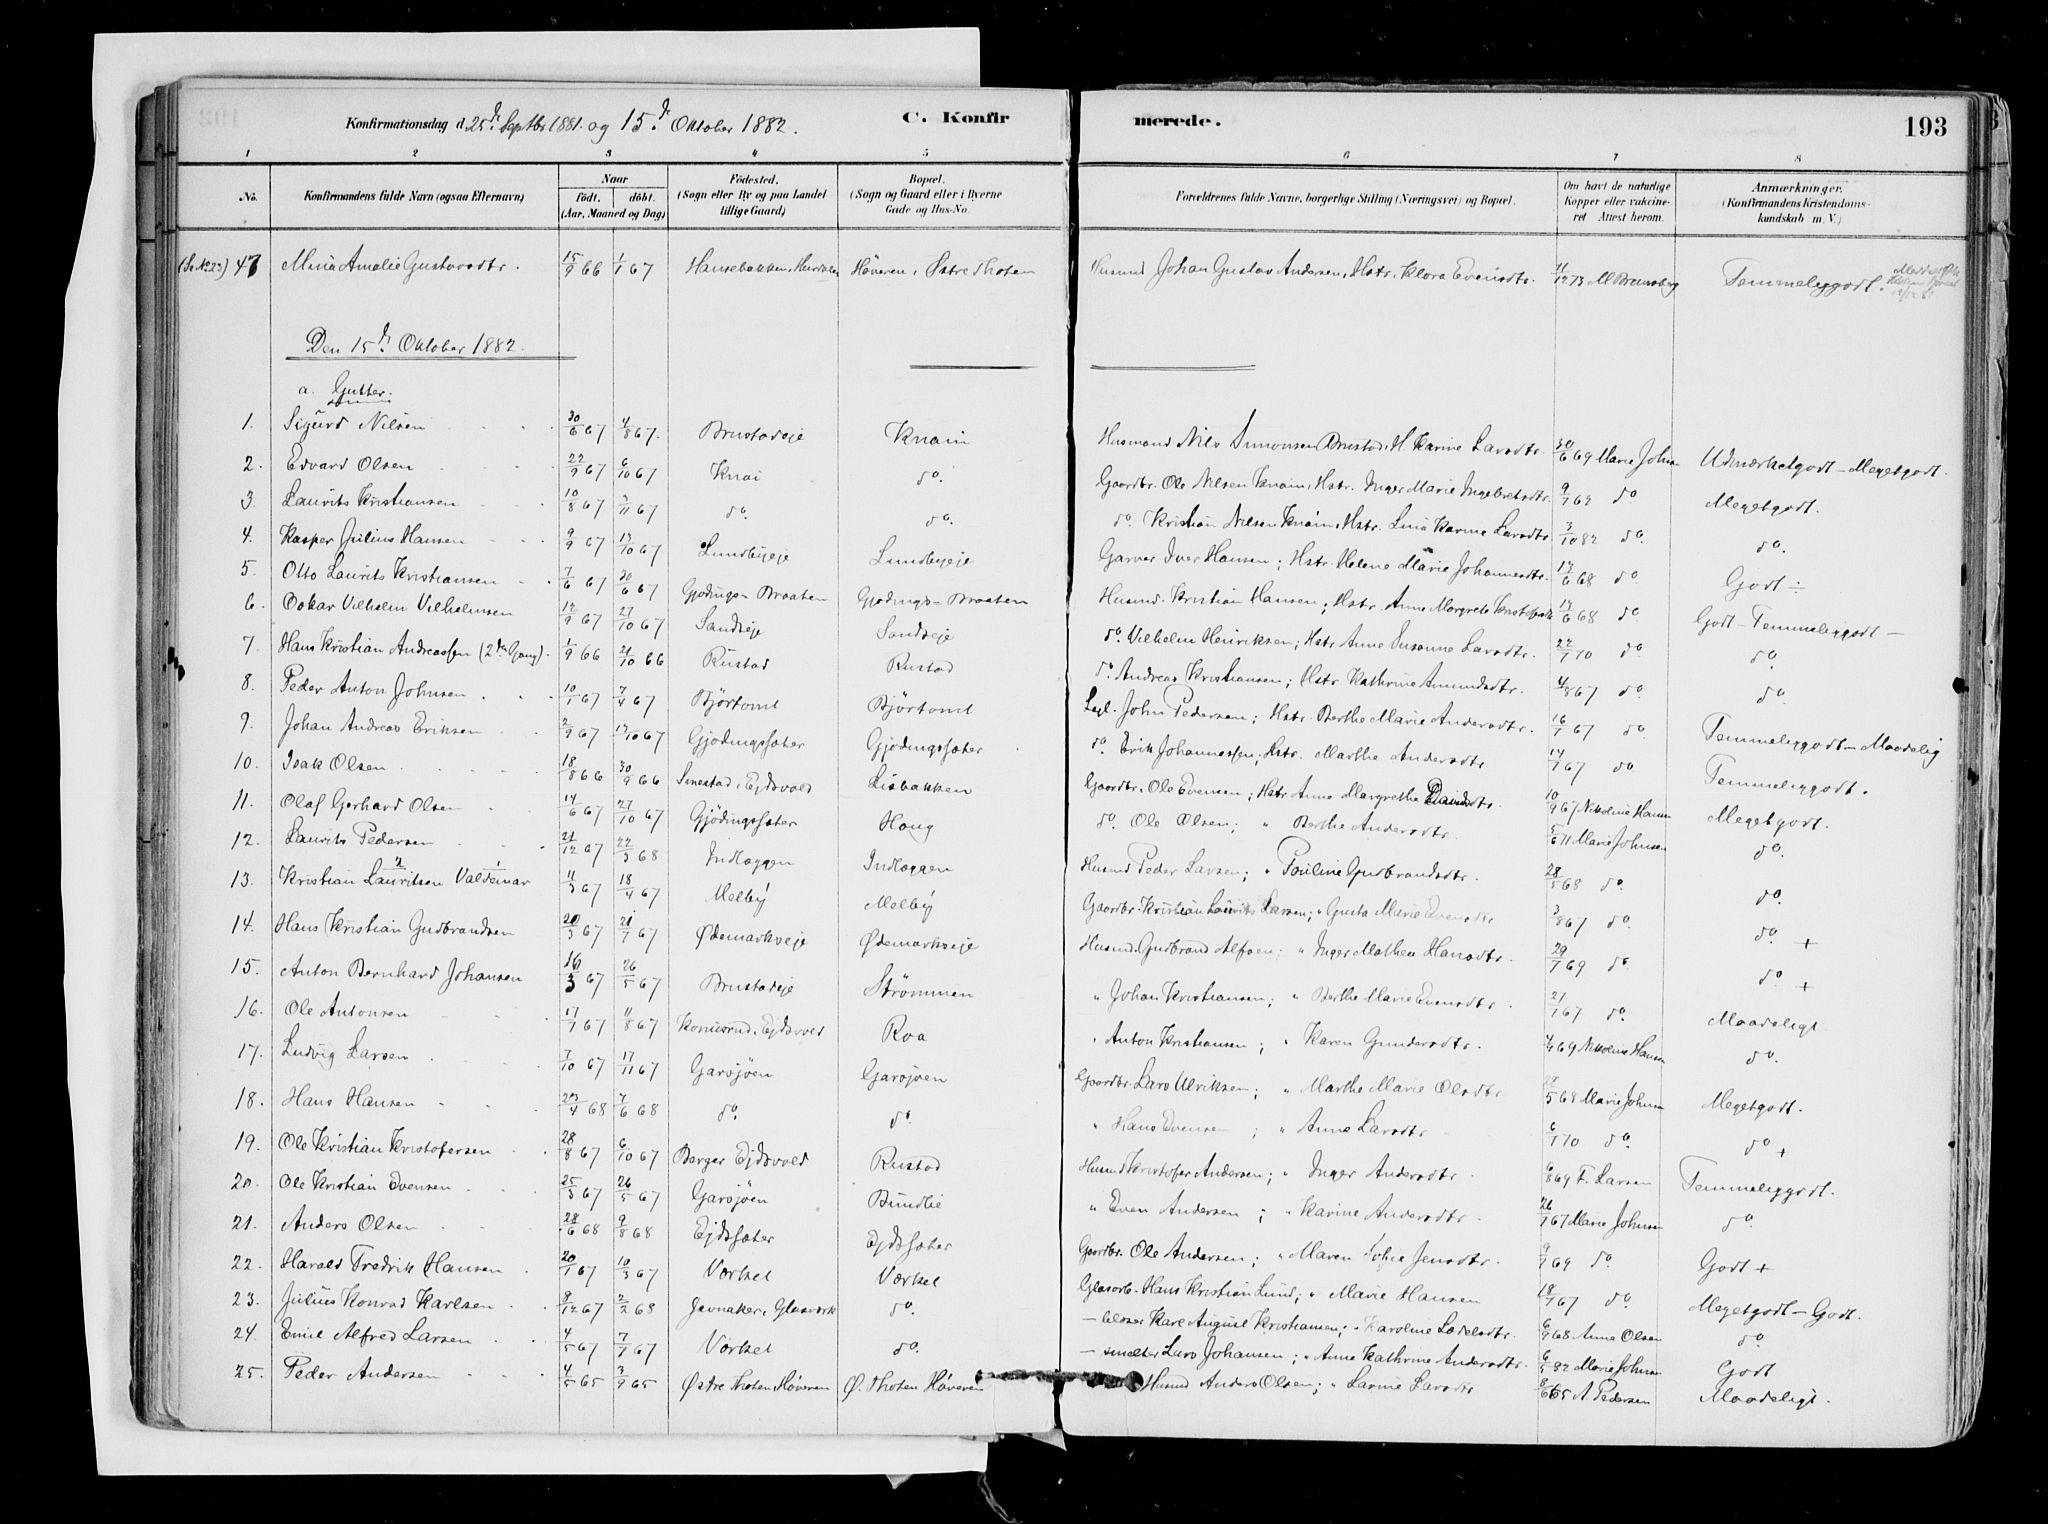 Konfirmationsdag d. 25de Septbr 1881. og 15de Oktober 1882. C. Konfirmerede. 193
1 2 3 4 5 6 7 8
No. Konfirmandens fulde Navn (ogsaa Efternavn) Naar født. døbt. (Aar, Maaned og Dag) Fødested. (Sogn eller By og paa Landet tillige Gaard) Bopæl. (Sogn og Gaard eller i Byerne Gade og Hus-No. Forældrenes fulde Navne, borgerlige Stilling (Næringsvei) og Bopæl. Om havt de naturlige Kopper eller vakcineret Attest herom. Anmærkninger. (Konfirmandens Kristendomskundskab m. V.)
(Se No 23) 47 Mina Amalie Gustavsdtr. 15/9 66 1/1 67 Hansebakken, Høveren, Østre Thoten Husmd Johan Gustav Andersen, Hstr. Klora Evensdtr. 11/12 73 Temmeliggodt.
Den 15de Oktober 1882.
a. Gutter.
1. Sigurd Nilsen 30/6 67 4/8 67. Brustadeje Knain Husmand Nils Simonsen Brustad, H. Karine Larsdtr. 30/6 69 Marie Johnsn Udmærketgodt - Megetgodt.
2. Edvard Olsen 22/9 67 6/10 67 Knai do. Gaardbr. Ole Nilsen Knain, Hstr. Inger Marie Ingebretsdtr. 9/7 69 do Megetgodt.
3. Laurits Kristiansen 10/8 67 3/11 67 do. do. do. Kristian Nilsen Knain, Hstr. Lina Karine Larsdtr. 3/10 82 do. do.
4. Kasper Julius Hansen 9/9 67 13/10 67 Lundbyeje Lundbyeje Garver Iver Hansen; Hstr. Helene Marie Johannesdtr. 13/6 68 do. Godt ÷
5. Otto Laurits Kristiansen 7/6 67 30/6 67 Gjødings-Braaten Gjødings-Braaten Husmd. Kristian Hansen; Hstr. Anne Margrete Kristofersdtr 13/6 68 do. Godt - Temmeliggodt -
6. Oskar Vilhelm Vilhelmsen 12/9 67 27/10 67 Sandseje Sandseje do. Vilhelm Henriksen; Hstr. Anne Susanne Larsdtr. 22/7 70 do. do.
7. Hans Kristian Andreassen (2den Gang). 1/9 66 21/10 66 Rustad Rustad do. Andreas Kristiansen; Hstr. Kathrine Amundsdtr. 4/8 67 do. do.
8. Peder Anton Johnsen 10/1 67 7/4 67 Bjørtomt Bjørtomt Legl. John Pedersen; Hstr. Berthe Marie Andersdtr. 16/7 67 do. Temmeliggodt - Maadelig
9. Johan Andreas Eriksen 2/9 67 13/10 67 Gjødingssæter Gjødingssæter do. Erik Johannessen; Hstr. Marthe Andersdtr 14/7 67 do Temmeliggodt.
10. Isak Olsen 18/8 66 30/9 66 Sinestad, Ejdsvold Lisbakken Gaardbr. Ole Evensen; Hstr. Anne Margrethe Davidsdtr. 10/9 67 Nikoline Hansn Megetgodt.
11. Olaf Gerhard Olsen 14/6 67 27/10 67 Gjødingssæter Houg do. Ole Olsen; " Berthe Andersdtr. 5/6 71 Marie Johnsen do.
12. Laurits Pedersen 21/12 67 22/3 68 Indlaggen Indlaggen Husmd Peder Larsen; " Pauline Gudbrandsdtr. 28/5 68 do. do.
13. Kristian Lauritsen 2 Valdemar 1 11/3 67 18/4 67 Melby Melby Gaardbr. Kristian Laurits Larsen; " Gusta Marie Evensdtr 3/8 67 do. do. +
14. Hans Kristian Gudbrandsen 20/3 67 21/7 67 Ødemarkseje Ødemarkseje Husmd. Gudbrand Alfsen; " Inger Mathea Hansdtr. 29/7 69 do. do +
15. Anton Bernhard Johansen 16/3 67 26/5 67 Brustadeje Strømmen " Johan Kristiansen; " Berthe Marie Evensdtr. 21/7 67 do. Maadeligt.
16. Ole Antonsen 17/7 67 11/8 67 Konusrud, Ejdsvold Roa " Anton Kristiansen; " Karen Gundersdtr. 69 Nikoline Hansn do.
17. Ludvig Larsen 7/10 67 17/11 67 Garsjøen Garsjøen Gaardbr. Lars Ulriksen; " Marthe Marie Olsdtr 5 68 Marie Johnsn Megetgodt.
18. Hans Hansen 23/4 68 7/6 68 do. do. " Hans Evensen; " Anne Larsdtr 6/7 70 do. do +
19. Ole Kristian Kristofersen 28/8 67 6/10 67 Berger Ejdsvold Rustad Husmd Kristofer Andersen; " Inger Andersdtr. 6/8 69 F. Larsen Temmeliggodt.
20. Ole Kristian Evensen 25/3 67 26/5 67 Garsjøen Bundlie " Even Andersen; " Karine Andersdtr. 26/7 67 Marie Johnsn do.
21. Anders Olsen 28/6 68 9/8 68 Ejdssæter Ejdssæter Gaardbr. Ole Andersen; " Maren Sofie Jensdtr. 9/7 69 do. Godt +
22. Harald Fredrik Hansen 20/1 67 10/3 67 Værket Værket Glasarb. Hans Kristian Lund; " Marie Hansen 18/7 67 do. Megetgodt - Godt.
23. Julius Konrad Karlsen 8/12 67 2/2 68 Jevnaker, Glasværk do. - blæser Karl August Kristiansen; " Karoline Lædelsdtr. 6/9 68 Anne Olsen do.
24. Emil Alfred Larsen 4/5 67 7/7 67 Værket do. - smelter Lars Johansen; " Anne Kathrine Andersdtr. 6/5 82 Marie Johnsn Godt
25. Peder Andersen 4/5 65 3/9 65 Østre Thoten, Høveren Ø. Thoten Høveren Husmd Anders Olsen; " Larine Larsdtr 8/6 65 A Pedersen Maadeligt.